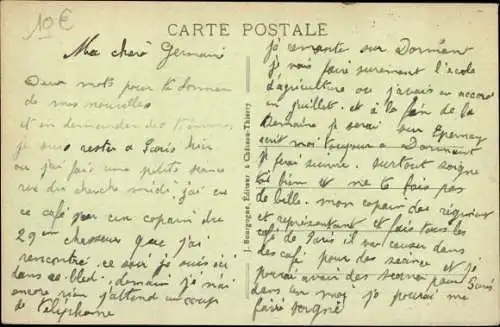 10 €
CARTE POSTALE
Ma chère Germaine
Deux mots pour te donner
de mes nouvelles
et en demander des tiennes,
je suis resté a Paris hier
ou j'ai fais une petite séance
rue du cherche midi j'ai vu
ce café par un copain du
29 eme chasseur que j'ai
rencontré. ce soir je suis ici
dans ce bled. demain je n'ai
encore rien j'attend un coup
de téléphone
J. Bourgogne, Éditeur à Château-Thierry
je remonte sur Dormant
je vais faire surement l'école
d'agriculture ou j'avais en accord
en juillet. et a la fin de la
semaine je serai sur Epernay
ecrit moi toujours a Dormant
je ferai suivre. surtout soigne
toi bien et ne te fais pas
de bille. mon copain des régions
et représentant et fais tous les
café de Paris il va causer dans
des café pour des séance et je
pourai avoir des séance pour Paris
dans un moi, je pourai me
faire soigné